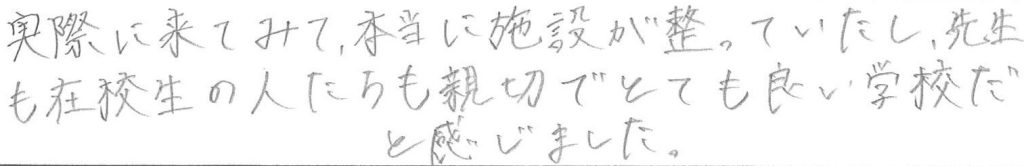 実際に来てみて、本当に施設が整っていたし、先生
も在校生の人たちも親切でとても良い学校だ
と感じました。